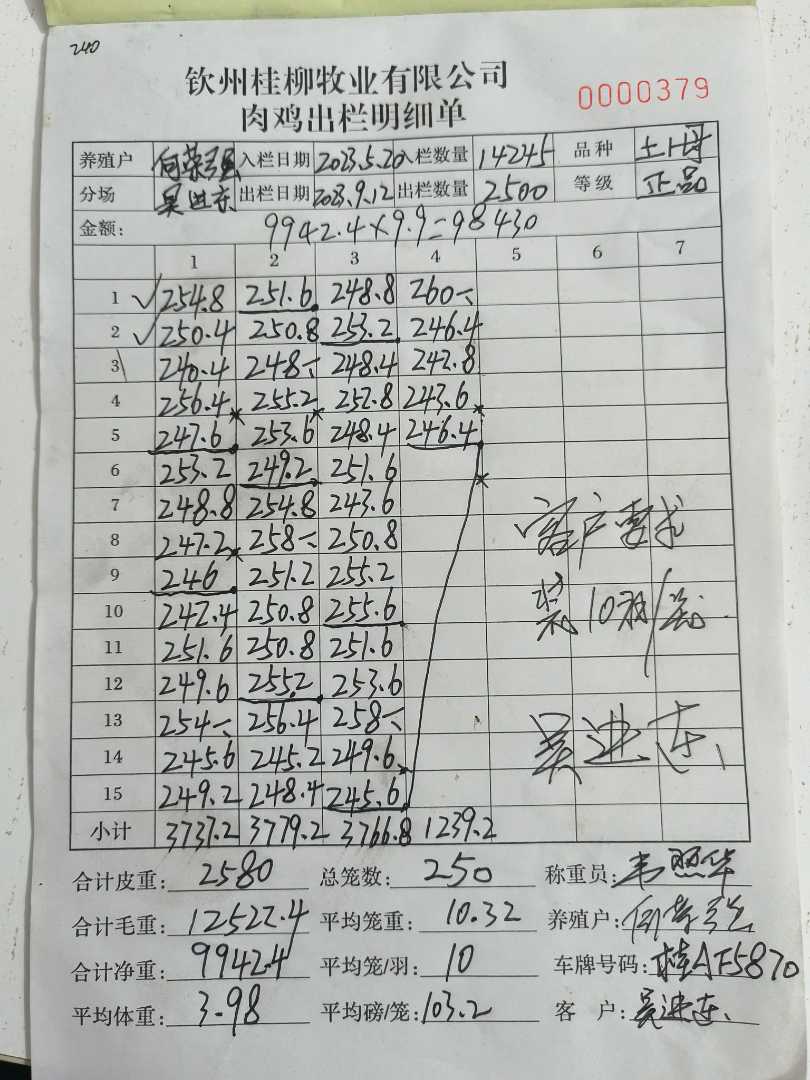 240
钦州桂柳牧业有限公司
0000379
肉鸡出栏明细单
养殖户 何荣强 入栏日期 2023.5.20 入栏数量 14245 品种 土1母
分场 吴进东 出栏日期 2023.9.12 出栏数量 2500 等级 正品
金额: 9942.4×9.9=98430
1 2 3 4 5 6 7
1 254.8 251.6 248.8 260-
2 250.4 250.8 253.2 246.4
3 240.4 248- 248.4 242.8
4 256.4 255.2 252.8 243.6
5 247.6 253.6 248.4 246.4
6 253.2 249.2 251.6
7 248.8 254.8 243.6
8 247.2 258- 250.8
9 246 251.2 255.2
10 242.4 250.8 255.6
11 251.6 250.8 251.6
12 249.6 255.2 253.6
13 254- 256.4 258-
14 245.6 245.2 249.6
15 249.2 248.4 245.6
小计 3737.2 3779.2 3766.8 1239.2
客户要求
装10羽/笼
吴进东
合计皮重: 2580 总笼数: 250 称重员: 韦照华
合计毛重: 12522.4 平均笼重: 10.32 养殖户: 何荣强
合计净重: 9942.4 平均笼/羽: 10 车牌号码: 桂AF5870
平均体重: 3.98 平均磅/笼: 103.2 客 户: 吴进东